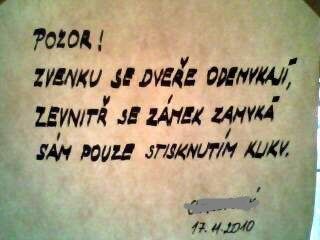 POZOR!
ZVENKU SE DVEŘE ODEMYKAJÍ,
ZEVNITŘ SE ZÁMEK ZAMYKÁ
SÁM POUZE STISKNUTÍM KLIKY.
17.11.2010